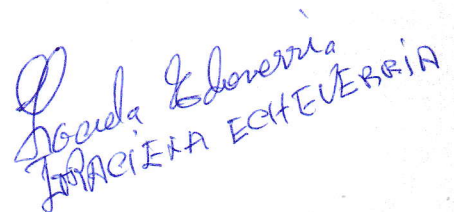 Graciela Echeverría
GRACIELA ECHEVERRÍA